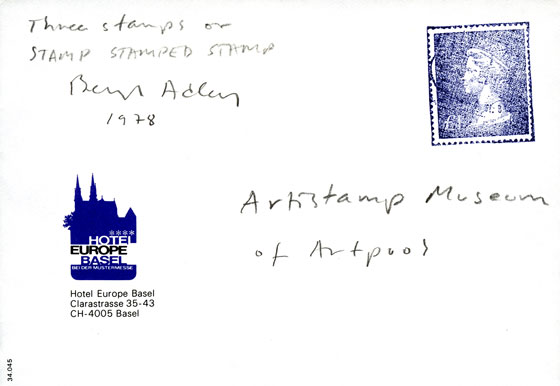 Three stamps or
STAMP STAMPED STAMP
1978
Artistamp Museum
of Artpool
****
HOTEL
EUROPE
BASEL
BEI DER MUSTERMESSE
Hotel Europe Basel
Clarastrasse 35-43
CH-4005 Basel
34.045